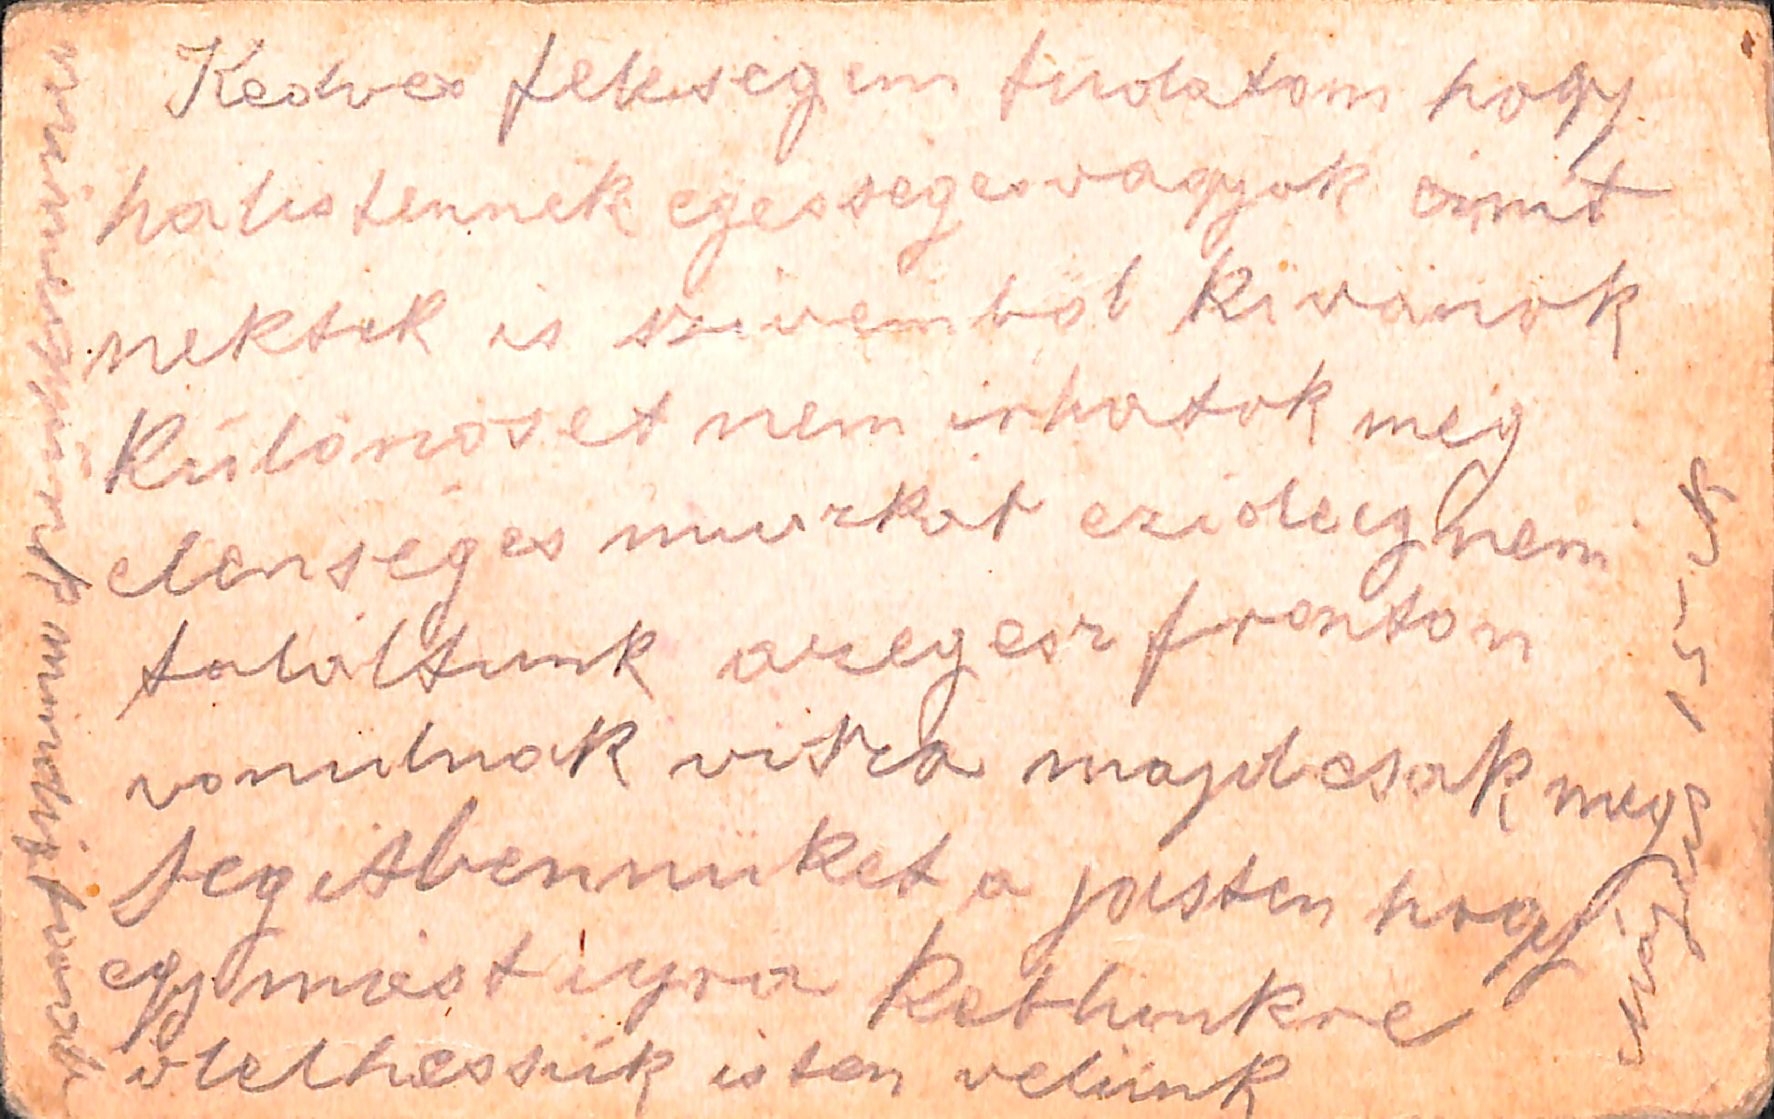 Kedves felesegem tudatom hogy
halistennek egesseges vagyok amit
nektek is szivemböl kivanok
Külonoset nem irhatok meg
elenseges muszkat ezideig nem
talaltunk azegesz fronton
vonulnak visza majdcsak meg
segit bennunket a joisten hogy
egymast ujra Keblunkre
ölelhessük isten velünk
Május 15-